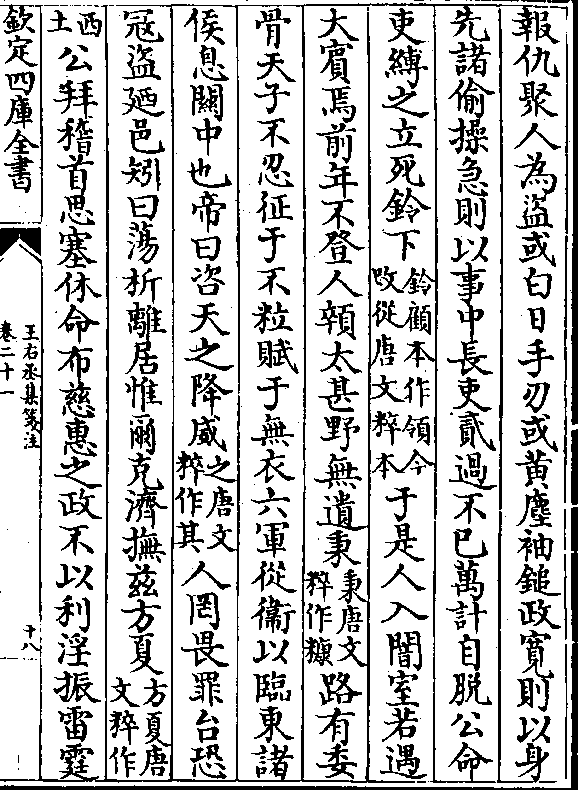 報仇聚人為盜或白日手刃或黄塵袖鎚政寛則以身
先諸偷操急則以事中長吏貳過不已萬計自脱公命
吏縛之立死鈴下鈴顧本作領今改從唐文粹本于是人入闇室若遇
大賓焉前年不登人顇太甚野無遺秉秉唐文粹作糠路有委
骨天子不忍征于不粒賦于無衣六軍從衛以臨東諸
侯息關中也帝曰咨天之降威之唐文粹作其人罔畏罪台恐
冦盜廼邑矧曰蕩析離居惟爾克濟撫兹方夏方夏唐文粹作
西土公拜稽首思塞休命布慈惠之政不以利淫振雷霆
欽定四庫全書
王右丞集箋注
卷二十一
十八